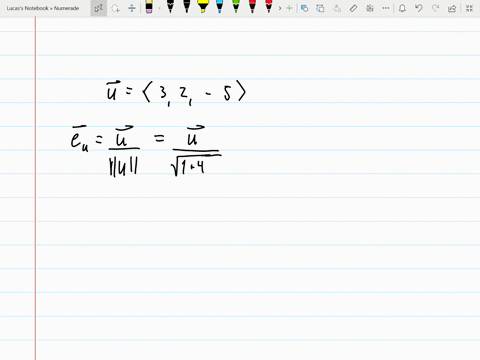 Lucas's Notebook » Numerade
u⃗ = ⟨ 3, 2, - 5 ⟩
e⃗ᵤ = u⃗ / ||u|| = u⃗ / √(9+4